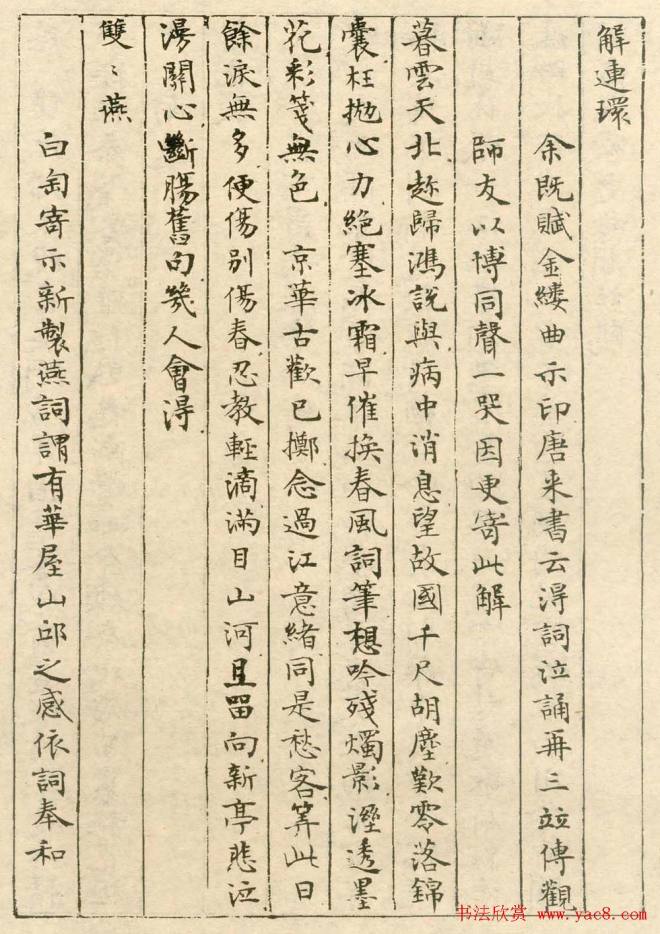 解連環
余既賦金縷曲示印唐来書云淂詞泣誦再三竝傳觀
師友以博同聲一哭因更寄此解
暮雲天北趂歸鴻說與病中消息望故國千尺胡塵歎零落錦
囊枉抛心力絕塞冰霜早催換春風詞筆想吟殘燭影溼透墨
花彩箋無色　京華古歡已擲念過江意緒同是愁客筭此日
餘淚無多便傷別傷春忍教輕滴滿目山河且留向新亭悲泣
漫關心斷腸舊句幾人會淂
雙〻燕
白匋寄示新製燕詞謂有華屋山邱之感依詞奉和
书法欣赏 www.yac8.com